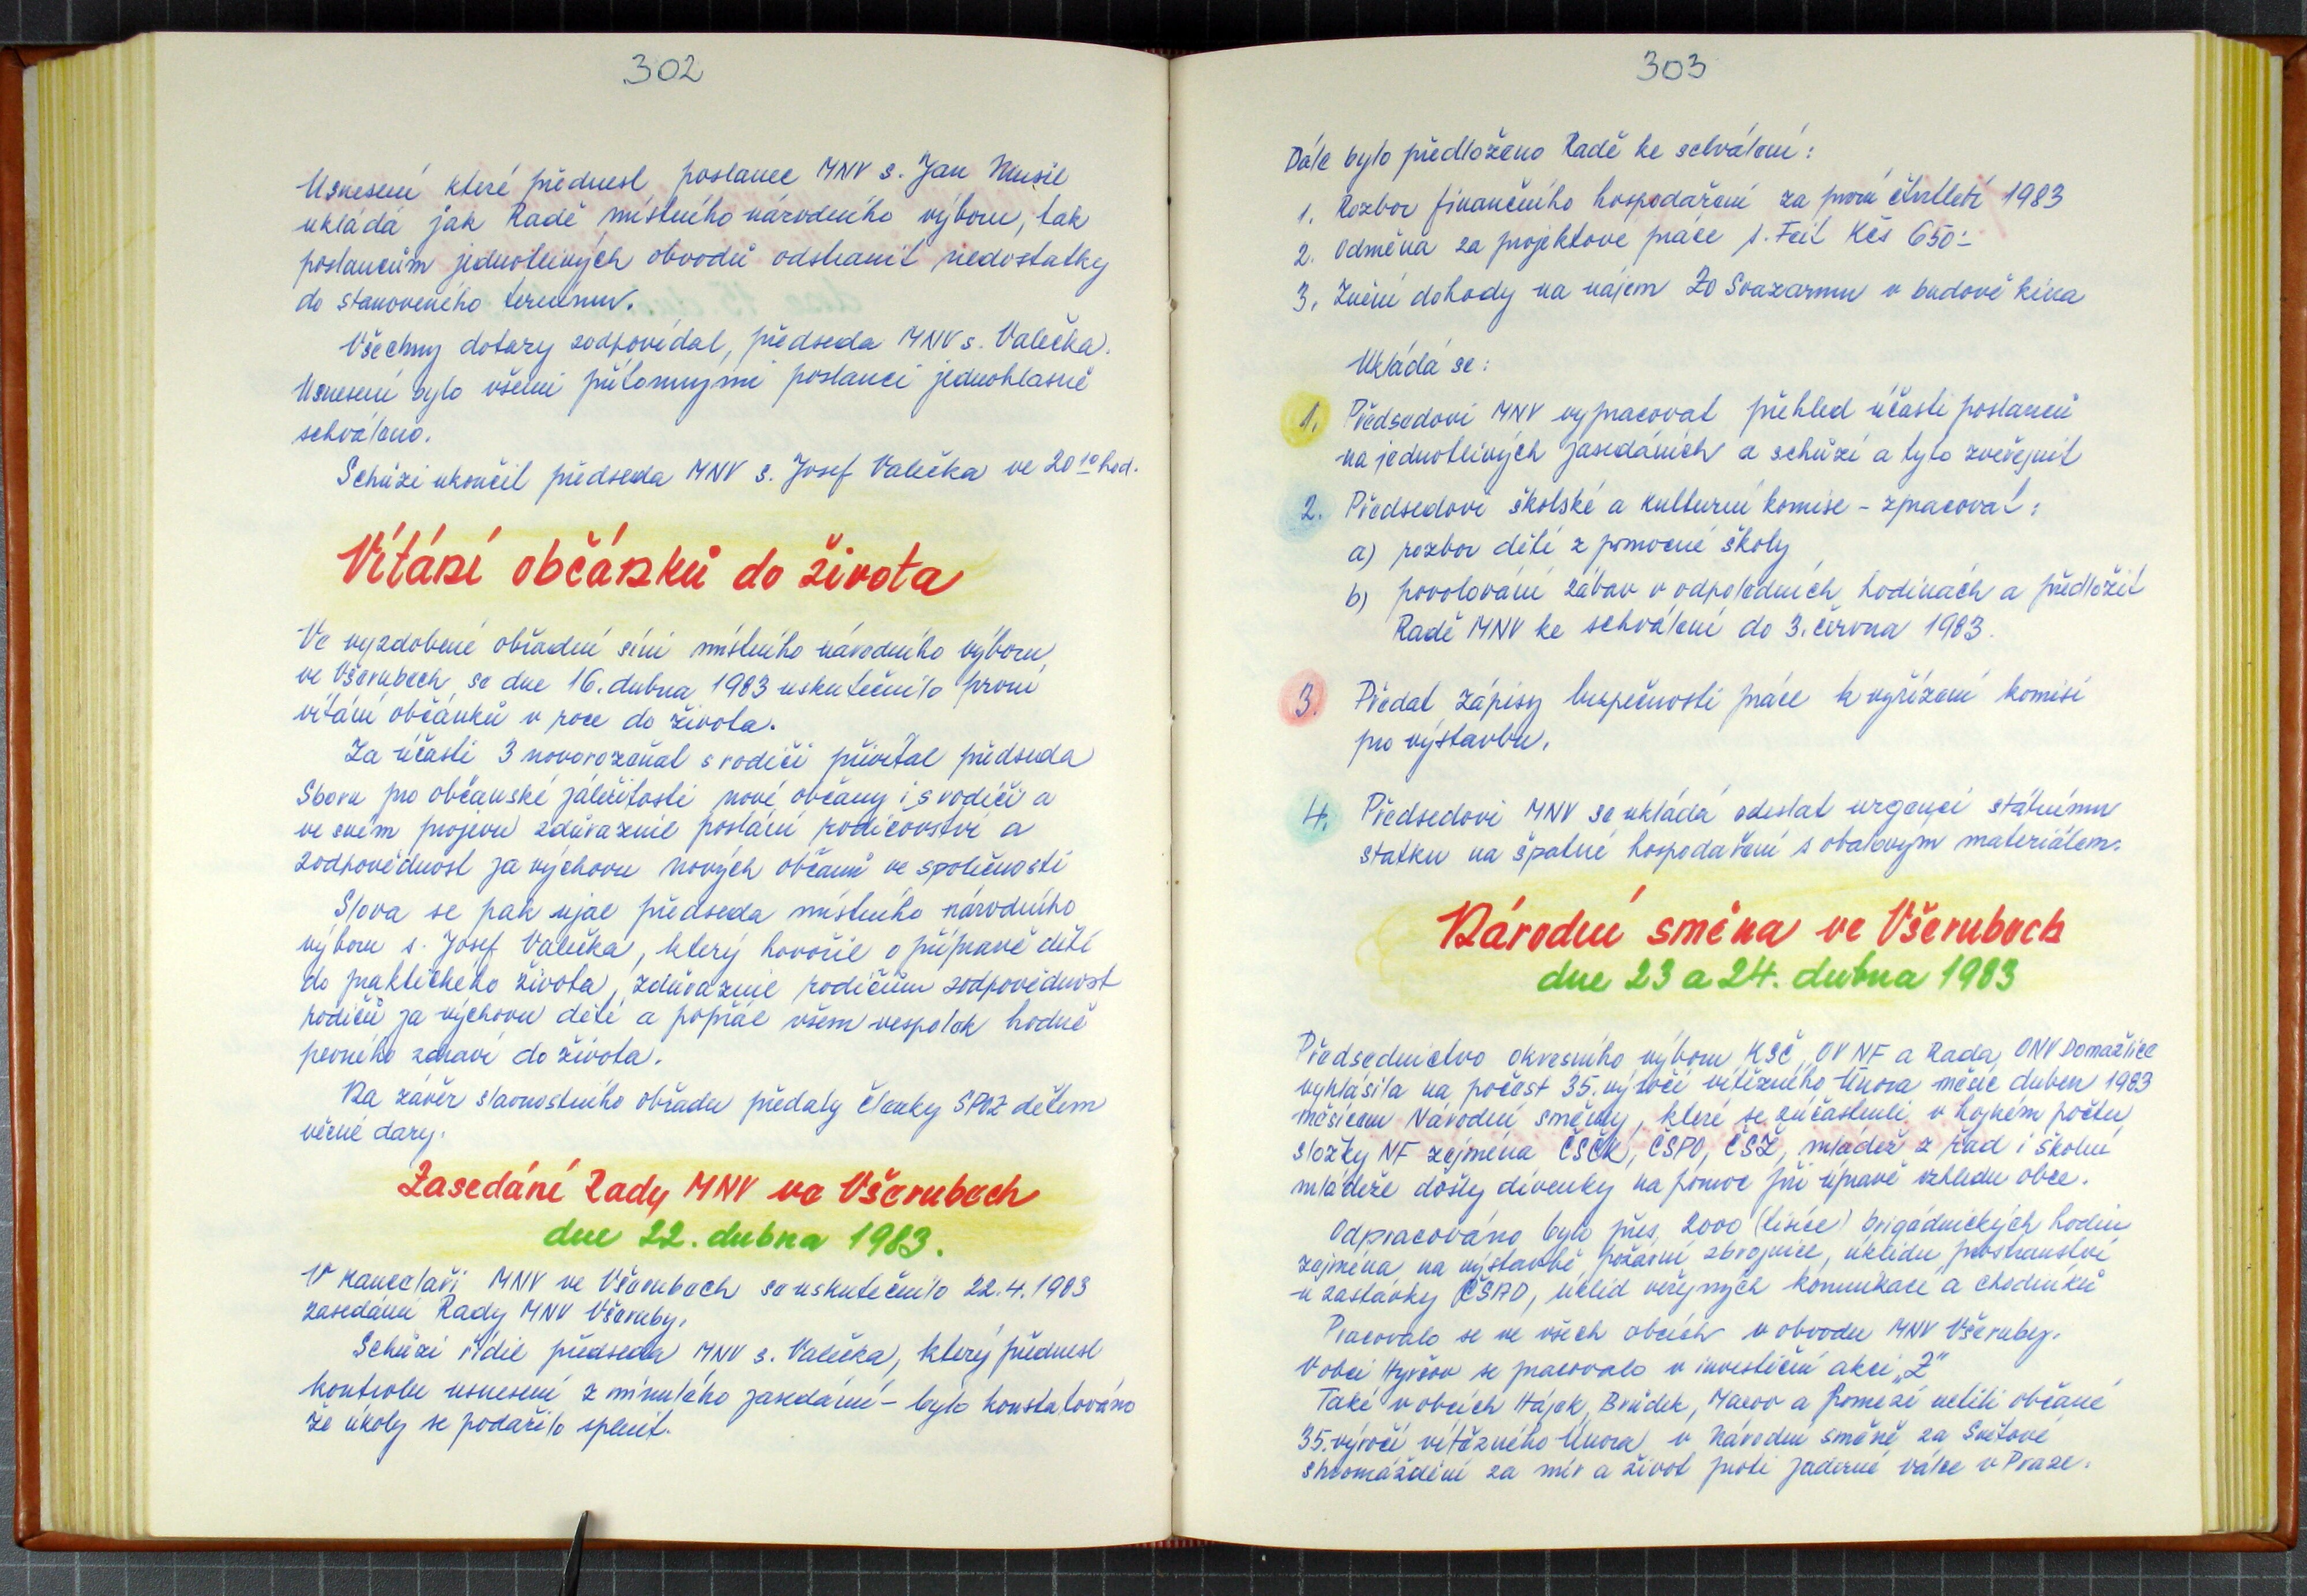 302
Usnesení které přednesl poslanec MNV s. Jan Musil
ukládá jak Radě místního národního výboru, tak
poslancům jednotlivých obvodů odstranit nedostatky
do stanoveného termínu.
Všechny dotazy zodpovídal, předseda MNV s. Valečka.
Usnesení bylo všemi přítomnými poslanci jednohlasně
schváleno.
Schůzi ukončil předseda MNV s. Josef Valečka ve 20 10 hod.
Vítání občánků do života
Ve vyzdobené obřadní síni místního národního výboru
ve Všerubech se dne 16. dubna 1983 uskutečnilo první
vítání občánků v roce do života.
Za účasti 3 novorozeňat s rodiči přivítal předseda
Sboru pro občanské záležitosti nové občany i s rodiči a
ve svém projevu zdůraznil poslání rodičovství a
zodpovědnost za výchovu nových občanů ve společnosti
Slova se pak ujal předseda místního národního
výboru s. Josef Valečka, který hovořil o přípravě dětí
do praktického života, zdůraznil rodičům zodpovědnost
rodičů za výchovu dětí a popřál všem vespolek hodně
pevného zdraví do života.
Na závěr slavnostního obřadu předaly členky SPOZ dětem
věcné dary.
Zasedání Rady MNV ve Všerubech
dne 22. dubna 1983.
V kanceláři MNV ve Všerubech se uskutečnilo 22.4.1983
zasedání Rady MNV Všeruby.
Schůzi řídil předseda MNV s. Valečka, který přednesl
kontrolu usnesení z minulého zasedání - bylo konstatováno
že úkoly se podařilo splnit.
303
Dále bylo předloženo Radě ke schválení:
1. Rozbor finančního hospodaření za první čtvrtletí 1983
2. Odměna za projektové práce s. Feil Kčs 650:-
3. Znění dohody na nájem ZO Svazarmu v budově kina
Ukládá se:
1. Předsedovi MNV vypracovat přehled účasti poslanců
na jednotlivých zasedáních a schůzí a tyto zveřejnit
2. Předsedovi školské a kulturní komise - zpracovat:
a) rozbor dětí z pomocné školy
b) povolování zábav v odpoledních hodinách a předložit
Radě MNV ke schválení do 3. června 1983.
3. Předat zápisy bezpečnosti práce k vyřízení komisi
pro výstavbu.
4. Předsedovi MNV se ukládá odeslat urgenci státnímu
statku na špatné hospodaření s obalovým materiálem.
Národní směna ve Všerubech
dne 23 a 24. dubna 1983
Předsednictvo okresního výboru KSČ, OV NF a Rada ONV Domažlice
vyhlásila na počest 35. výročí vítězného Února měsíc duben 1983
měsícem Národní směny, které se zúčastnili v hojném počtu
složky NF zejména ČSČK, ČSPO, ČSŽ, mládež z řad i školní
mládeže došly dívenky na pomoc při úpravě vzhledu obce.
Odpracováno bylo přes 2000 (tisíce) brigádnických hodin
zejména na výstavbě požární zbrojnice, úklidu prostranství
u zastávky ČSAD, úklid veřejných komunikací a chodníků
Pracovalo se ve všech obcích v obvodu MNV Všeruby.
V obci Hyršov se pracovalo v investiční akci „Z"
Také v obcích Hájek, Brůdek, Maxov a Pomezí uctili občané
35. výročí vítězného Února v Národní směně za Světové
shromáždění za mír a život proti jaderné válce v Praze.